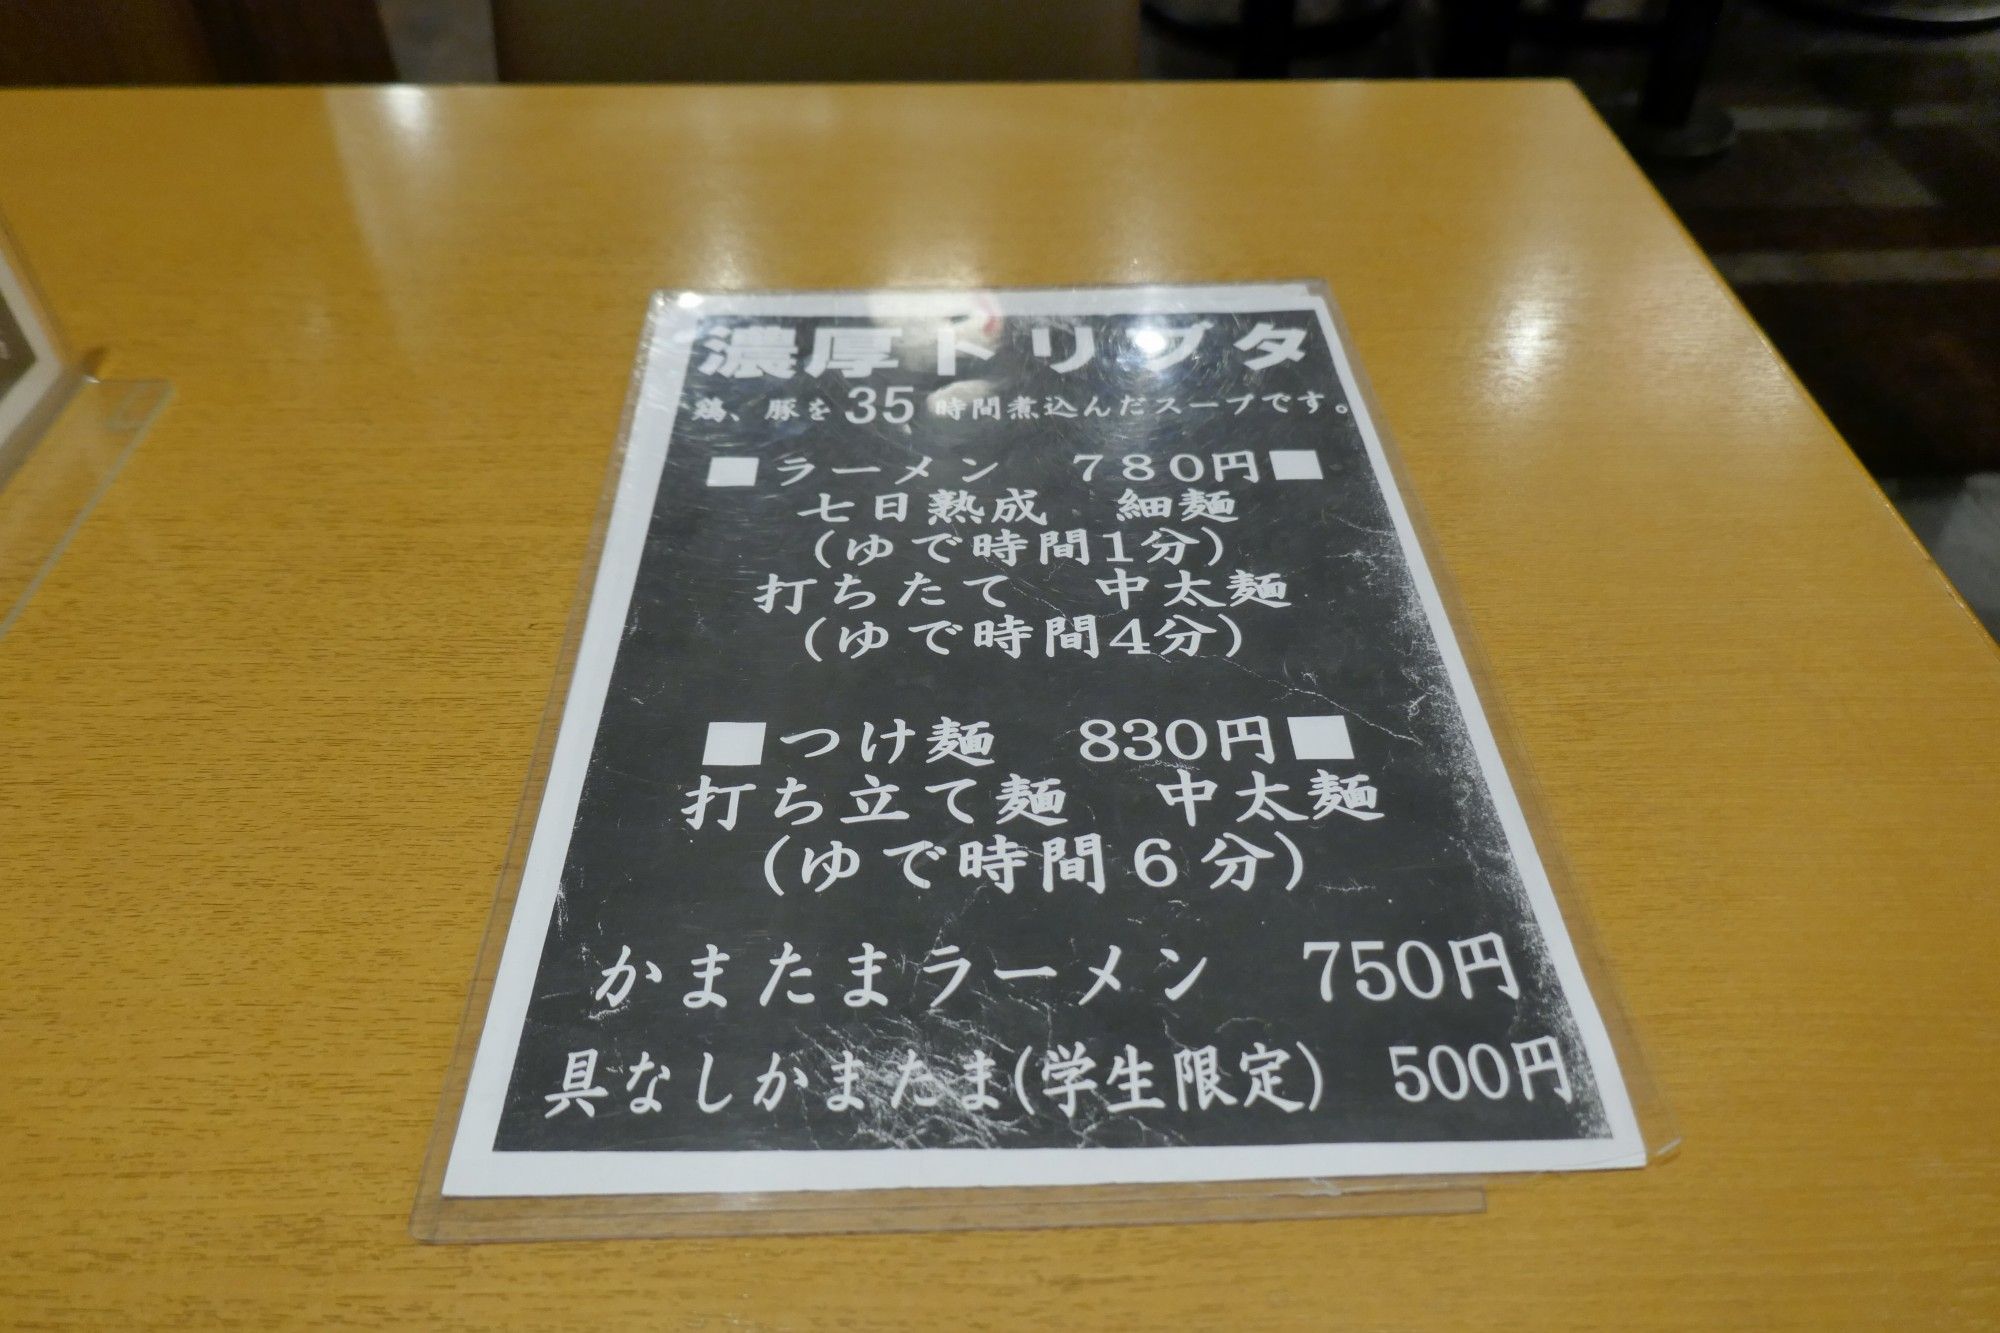 濃厚トリブタ
鶏、豚を35時間煮込んだスープです。
■ラーメン　７８０円■
七日熟成　細麺
(ゆで時間1分)
打ちたて　中太麺
(ゆで時間4分)
■つけ麺　830円■
打ち立て麺　中太麺
(ゆで時間６分)
かまたまラーメン　750円
具なしかまたま(学生限定)　500円